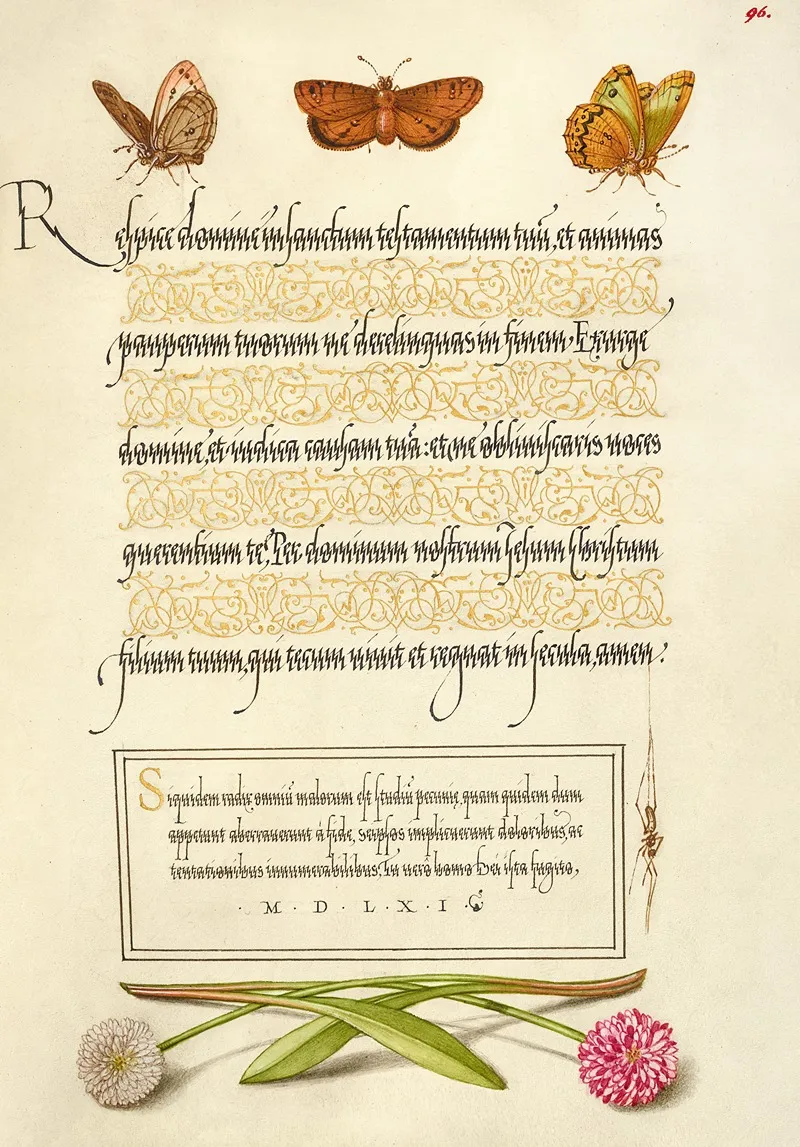 96.
Respice domine in sanctum testamentum tuũ, et animas
pauperum tuorum ne derelinquas in finem. Exurge
domine, et iudica causam tuã: et ne obliviscaris voces
querentium te. Per dominum nostrum Jesum Christum
filium tuum, qui tecum vivit et regnat in secula, amen.
Siquidem radix omniũ malorum est studiũ pecunię, quam quidem dum
appetunt aberraverunt à fide, seipsos implicuerunt doloribus, ac
tentationibus innumerabilibus, Tu verò homo Dei ista fugito,
· M · D · L · X · I ·